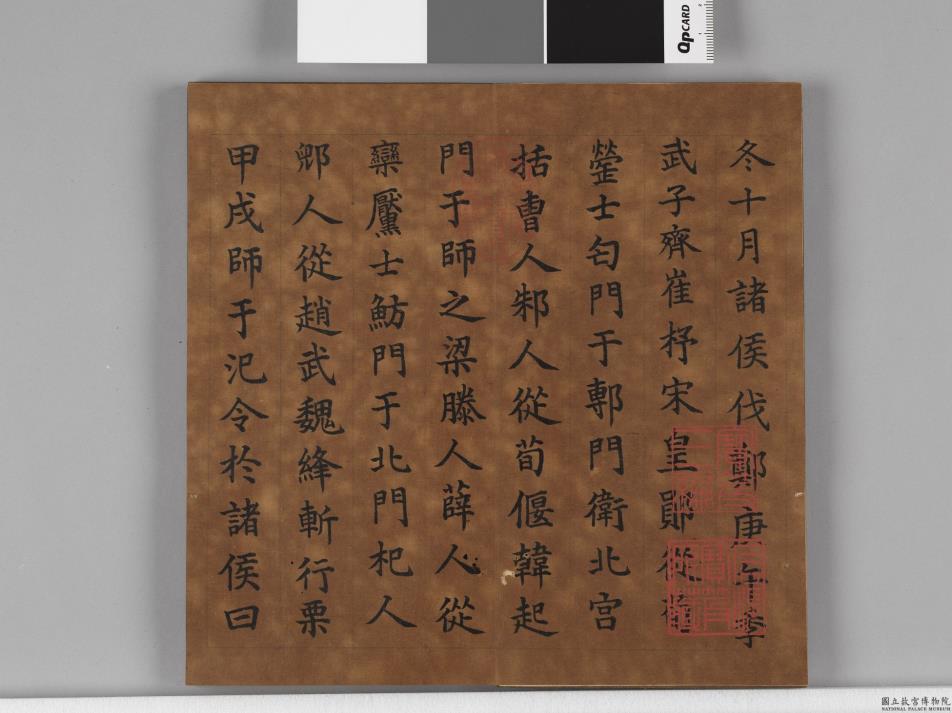 冬十月諸侯伐鄭庚午季
武子齊崔杼宋皇鄖從荀
罃士匄門于鄟門衛北宮
括曹人邾人從荀偃韓起
門于師之梁滕人薛人從
欒黶士魴門于北門杞人
郳人從趙武魏絳斬行栗
甲戌師于汜令於諸侯曰
QpCARD
國立故宮博物院
NATIONAL PALACE MUSEUM